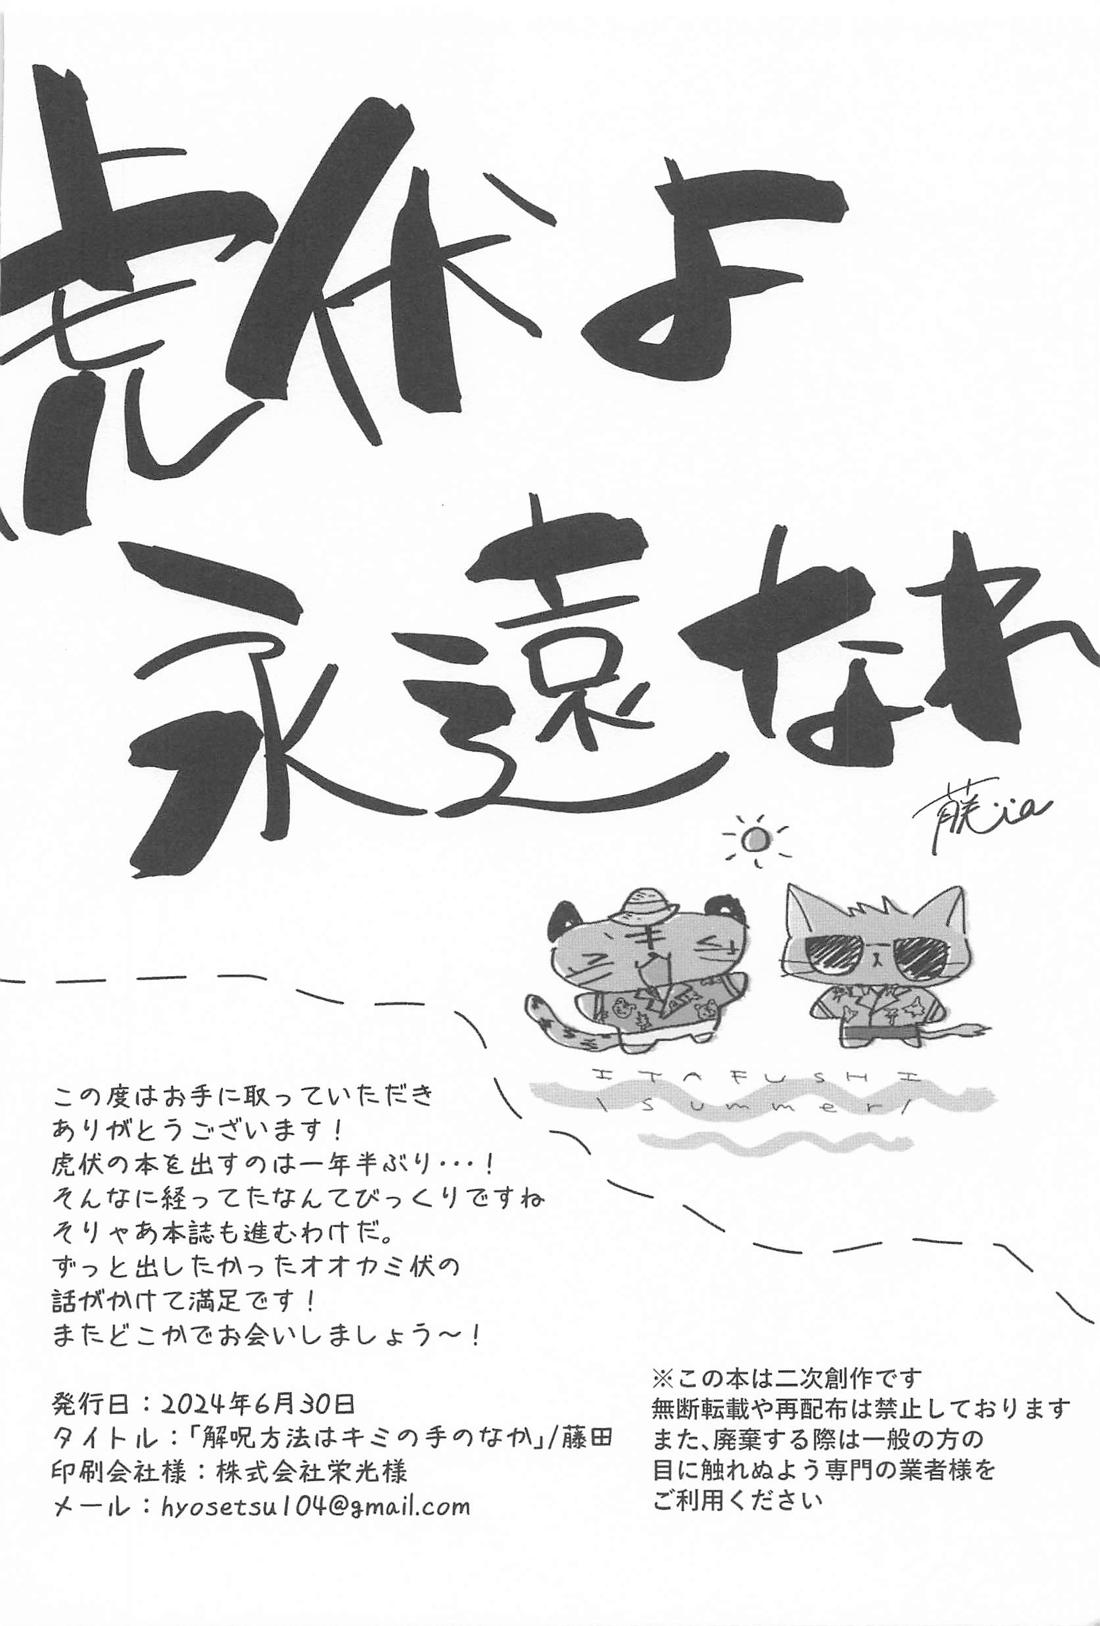 虎伏よ
永遠なれ
ITAFUSHI
\summer/
この度はお手に取っていただき
ありがとうございます！
虎伏の本を出すのは一年半ぶり・・・！
そんなに経ってたなんてびっくりですね
そりゃあ本誌も進むわけだ。
ずっと出したかったオオカミ伏の
話がかけて満足です！
またどこかでお会いしましょう～！
発行日：2024年6月30日
タイトル：「解呪方法はキミの手のなか」/藤田
印刷会社様：株式会社栄光様
メール：hyosetsu104@gmail.com
※この本は二次創作です
無断転載や再配布は禁止しております
また、廃棄する際は一般の方の
目に触れぬよう専門の業者様を
ご利用ください